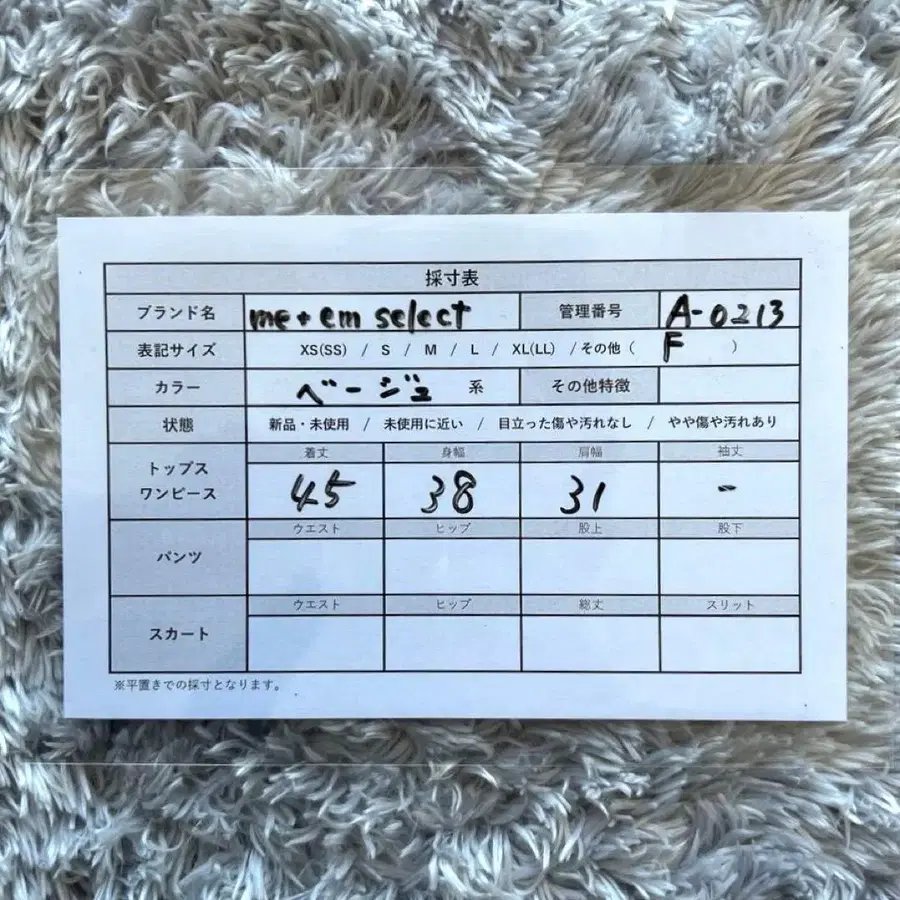 採寸表
ブランド名 me+em select 管理番号 A-0213
表記サイズ XS(SS) / S / M / L / XL(LL) / その他 ( F )
カラー ベージュ 系 その他特徴
状態 新品・未使用 / 未使用に近い / 目立った傷や汚れなし / やや傷や汚れあり
トップス
ワンピース
着丈 身幅 肩幅 袖丈
45 38 31 -
パンツ
ウエスト ヒップ 股上 股下
スカート
ウエスト ヒップ 総丈 スリット
※平置きでの採寸となります。